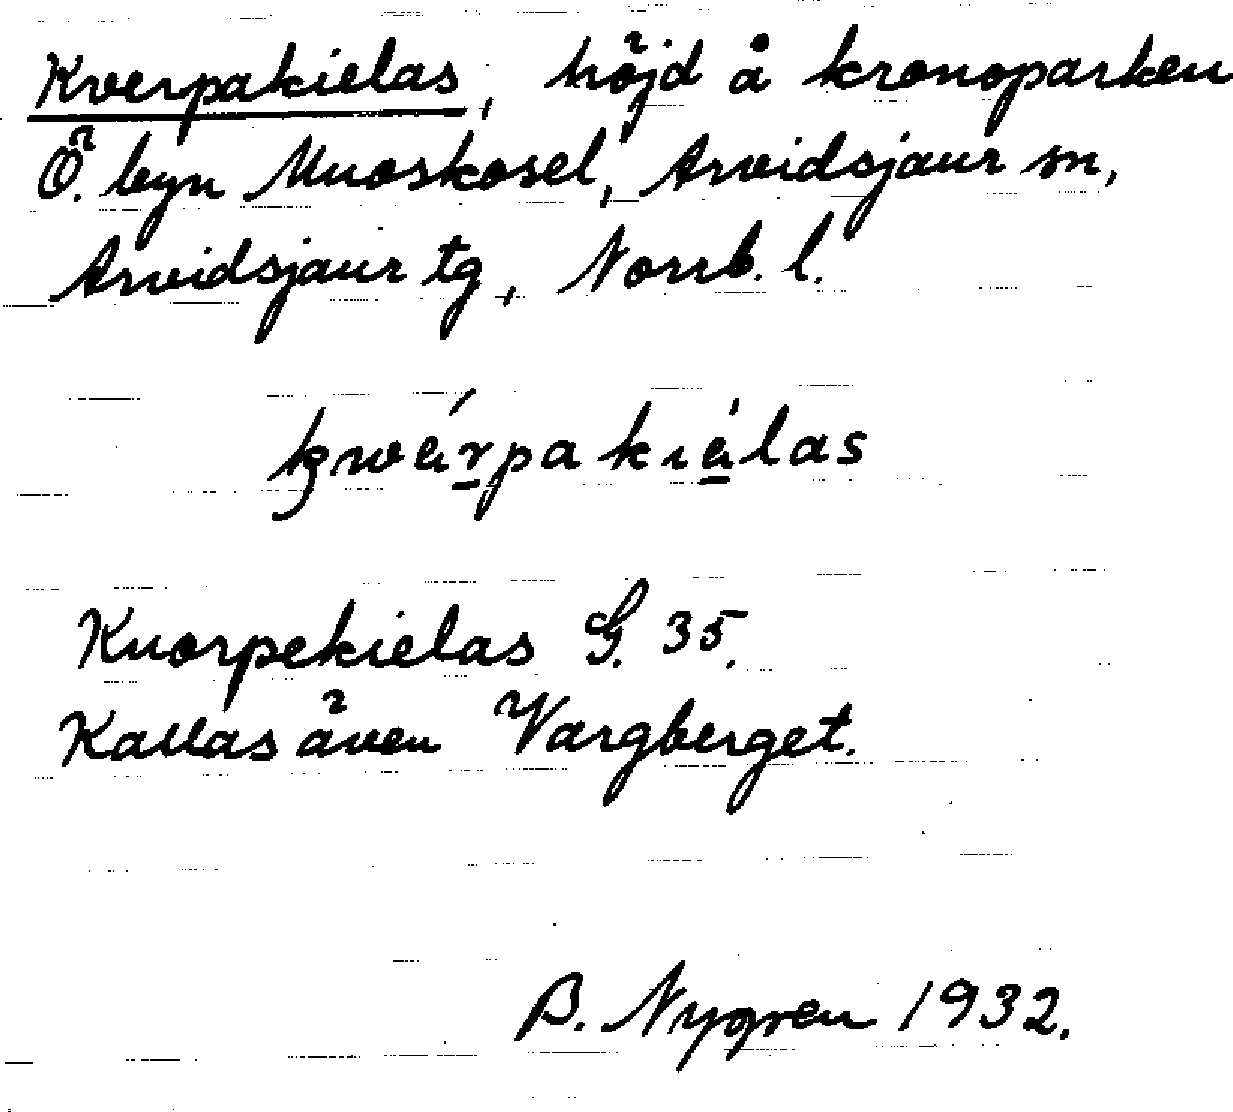 Kverpakielas, höjd å kronoparken
Ö. byn Muoskosel, Arvidsjaur sn,
Arvidsjaur tg, Norrb. l.
Kuorpekielas G. 35.
Kallas även Vargberget.
B. Nygren 1932.